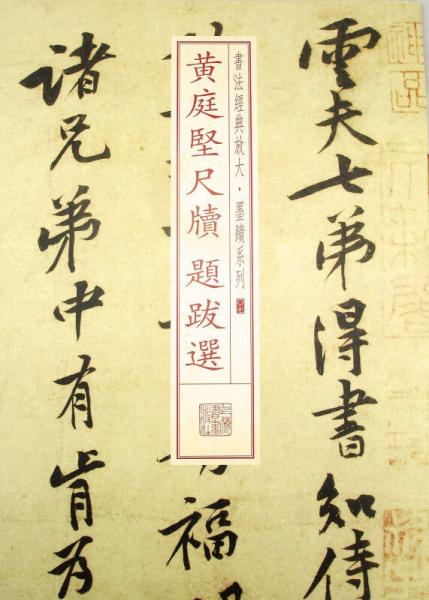 雲夫七弟得書知侍
福
諸兄弟中有肯為
書法經典放大·墨蹟系列
黃庭堅尺牘 題跋選